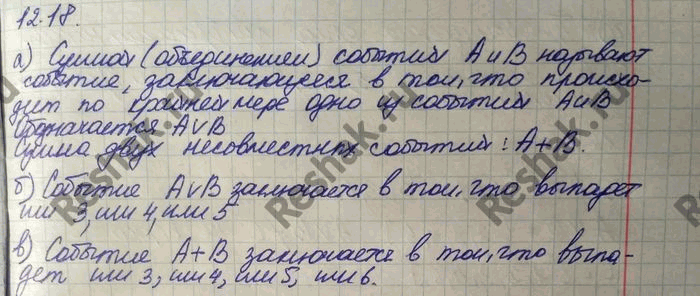 12.18.
а) Суммой (объединением) событий А и В называют
событие, заключающееся в том, что происхо-
дит по крайней мере одно из событий А и В
Обозначается A∨B
Сумма двух несовместных событий: А+В.
б) Событие A∨B заключается в том, что выпадет
или 3, или 4, или 5
в) Событие А+В заключается в том, что выпа-
дет или 3, или 4, или 5, или 6.
Reshak.ru
Reshak.ru
Reshak.ru